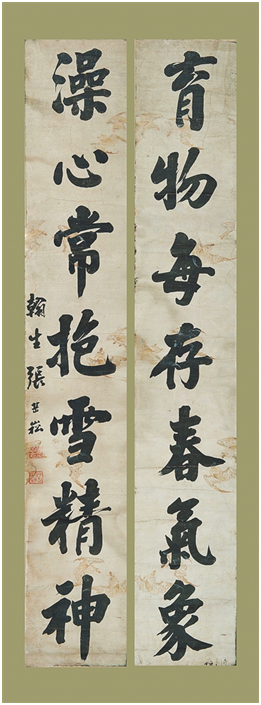 育物每存春氣象
澡心常抱雪精神
翰生張基崧